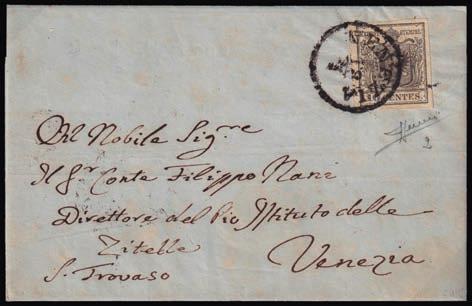 VENEZIA
CENTES.
Al Nobile Sig.re
Il Sr. Conte Filippo Nani
Direttore del Pio Istituto delle
Zitelle
Venezia
S. Trovaso
2